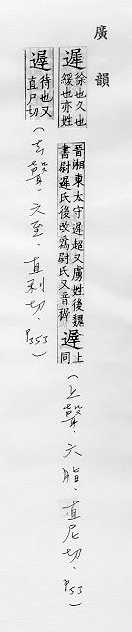 廣韻
遲徐也久也
緩也亦姓
晉湘東太守遲超又虜姓後魏
書尉遲氏後改為尉氏又音稚
遲上同
(上聲．六脂．直尼切．P53)
遲待也又
直尸切
(去聲．六至．直利切．P353)